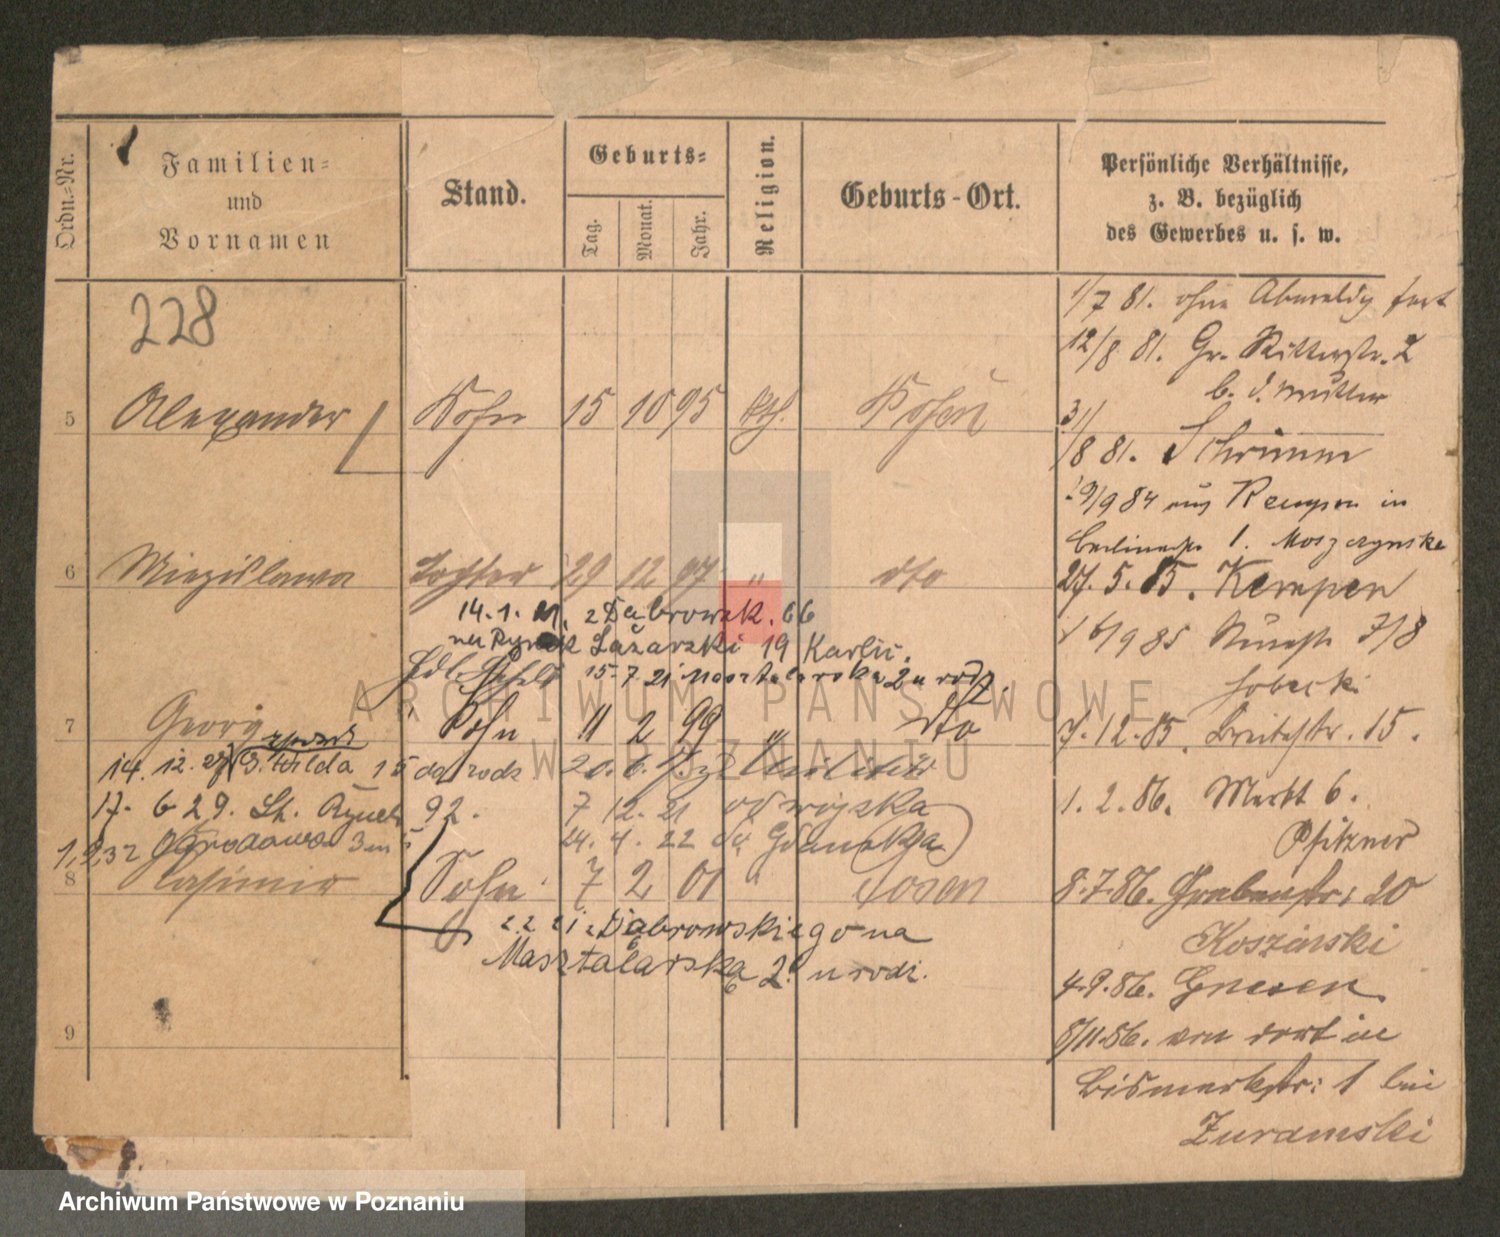 Ordn.-Nr.
Familien-
und
Vornamen
Stand.
Geburts-
Tag.
Monat.
Jahr.
Religion.
Geburts-Ort.
Persönliche Verhältnisse,
z. B. bezüglich
des Gewerbes u. s. w.
228
5 Alexander Sohn 15 10 95 kth. Posen
6 Miezislawa Tochter 29 12 97 " dto
14.1.21. z Dąbrowsk. 66
na Rynek Łazarski 19 Karlic.
15.7.21 Masztalarska 2 u rodz.
7 Georg Sohn 11 2 99 " dto
14. 12. G. Wilda 15 do rodz
17. 6 29. St. Rynek 92.
7 12. 21 od wojska
24. 4. 22 do Gdańska
1,9,32 Ogrodowa 3
8 Casimir Sohn 7 2 01 " Posen
2.2 21 z Dąbrowskiego na
Masztalarską 2. u rodz.
9
1/7 81. ohne Abmeldg fort
12/8 81. Gr. Ritterstr. 2
b. d. Mutter
31/8 81. Schrimm
19/9 84 aus Kempen in
Berlinerstr 1. Moszczynska
27.5.85. Kempen
16/9 85 7/8
Sobecki
7.12.85. Breitestr. 15.
1.2.86. Markt 6.
Pfitzner
8.7.86. Grabenstr: 20
Koszinski
4.9.86. Gnesen
8/11.86. von dort in
Bismarkstr: 1 bei
Zuramski
ARCHIWUM PAŃSTWOWE
W POZNANIU
Archiwum Państwowe w Poznaniu